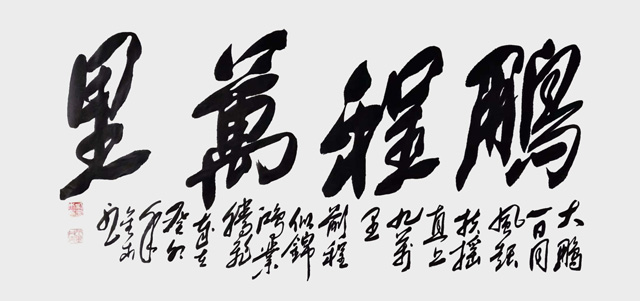 鵬程萬里
大鵬
一日同
風起
扶摇
直上
九萬
里
前程
似錦
鴻業
騰飛
癸卯
年